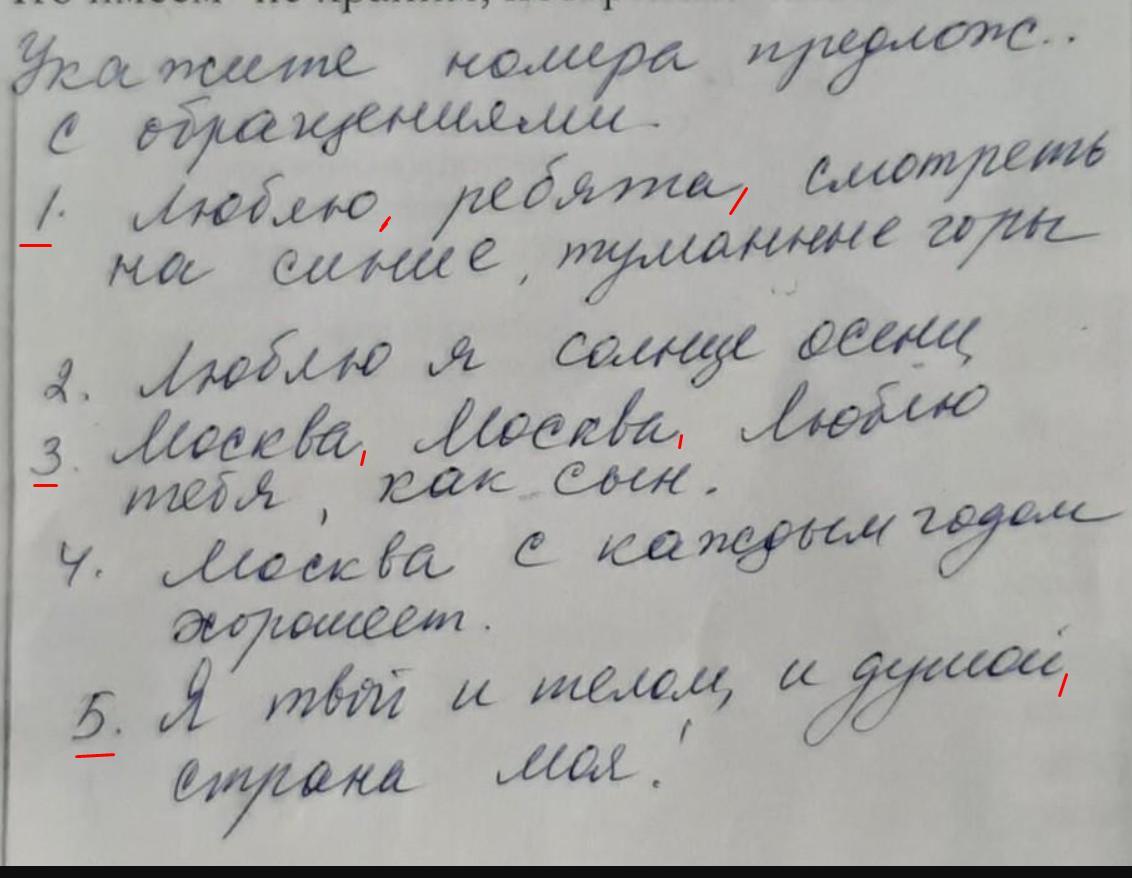 Укажите номера предлож..
с обращениями.
1. Люблю, ребята, смотреть
на синие, туманные горы
2. Люблю я солнце осени,
3. Москва, Москва, Люблю
тебя, как сын.
4. Москва с каждым годом
хорошеет.
5. Я твой и телом, и душой,
страна моя!